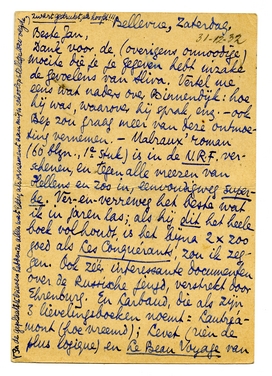 zwart gedrukt, als hoofd
Bellevue, Zaterdag,
31-12-32
Beste Jan,
Dank voor de (overigens onnoodige)
moeite die je je gegeven hebt inzake
de gevoelens van Oliva. Vertel me
eens wat naders over Binnendijk: hoe
hij was, waarover hij sprak, enz. - ook
Bep zou graag meer van deze ontmoe-
ting vernemen. - Malraux' roman
(60 blzn., 1e stuk) is in de N.R.F. ver-
schenen, en tegen alle meeren van
Hellens en zoo in, eenvoudigweg super-
be. Ver-en-verreweg het beste wat
ik in jaren las; als hij dit het heele
boek volhoudt, is het bijna 2 x zoo
goed als Les Conquérants, zou ik zeg-
gen. Ook zéér interessante documenten
over de Russische jeugd, verstrekt door
Ehrenburg. En Larbaud, die als zijn
3 lievelingsboeken noemt: Lautréa-
mont (hoe vreemd); Levet (rien de
plus logique) en Le Beau Voyage van